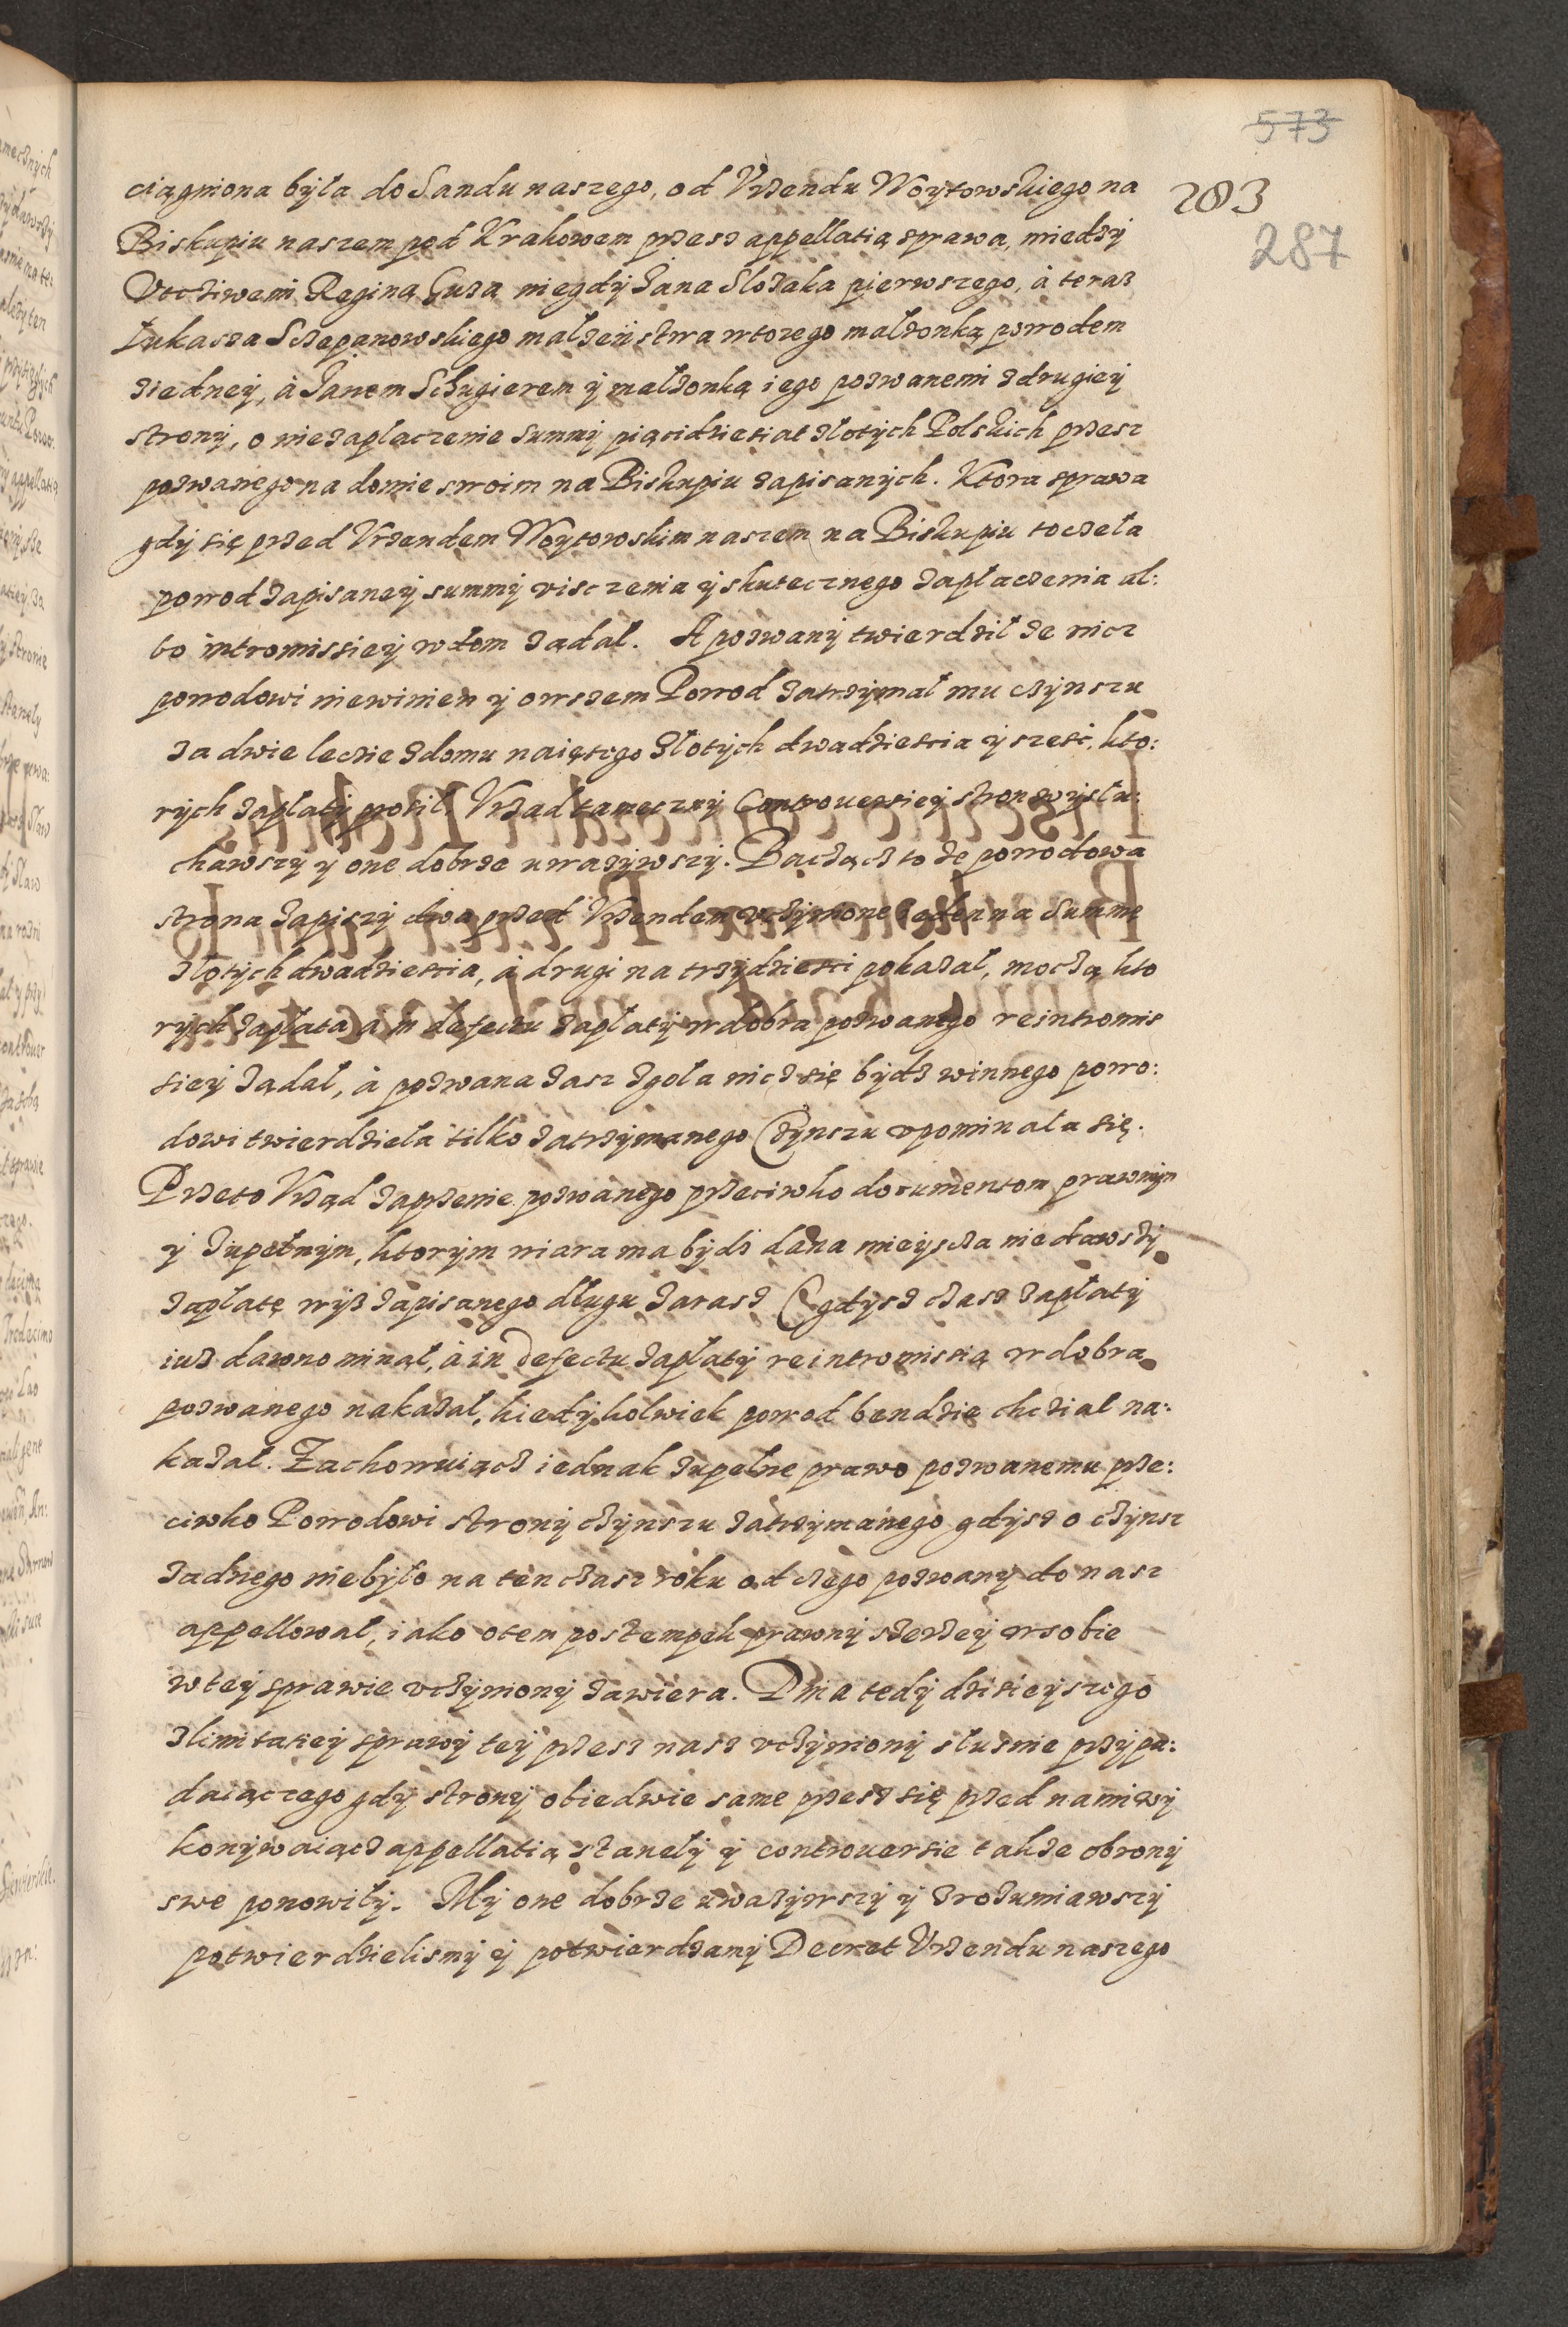 573
283
287
ciągniona była do Sandu naszego, od Vrzendu Woytowskiego na
Biskupiu naszem pod Krakowem przesz appellatią sprawa, miedzÿ
Vtcziwemi Reginą Guzą niegdÿ Jana Slozaka pierwszego, à teraz
Łukasza Sczepanowskiego małzeństwa wtorego małzonką powodem
ziedneÿ, à Janem Schugierem ÿ małzonką iego pozwanemi zdrugieÿ
stronÿ, o niezapłaczenie summÿ piącidziesiat złotÿch Polskich przesz
pozwanego na domie swoim na Biskupiu zapisanÿch. Ktora sprawa
gdÿ się przed Vrzendem Woÿtowskim naszem na Biskupiu toczeła
powod zapisaneÿ summÿ viszczenia ÿ skutecznego zapłaczenia al:
bo intromissieÿ w dom ządał. A pozwanÿ twierdził ze nicz
powodowi niewinien ÿ owszem Powod zatrzÿmał mu czÿnszu
za dwie lecie zdomu naiętego złotÿch dwadziescia ÿ szesć, kto:
rÿch zapłatÿ prosił. Vrząd tamecznÿ Controuersieÿ stron wÿsłu:
chawszy y one dobrze uwazÿwszÿ. Bacząc to ze powodowa
strona zapiszÿ dwa przed Vrzendem vczÿnione ieden na summę
złotÿch dwadziescia, à drugi na trzÿdziesci pokazał, moczą kto
rÿch zapłata a in defectu zapłatÿ w dobra pozwanego reintromis
sieÿ ządał, à pozwana zasz zgoła nicz się bÿdz winnego powo:
dowi twierdzieła tilko zatrzÿmanego Czÿnszu vpominała się.
Przeto Vrząd zaprzenie pozwanego przeciwko documentom prawnÿm
ÿ zupełnÿm, ktorÿm wiara ma bÿdz dana mieÿscza nie dawszÿ
zapłatę wÿsz zapisanego długu zarasz gdÿsz czasz zapłatÿ
iusz dawno minął, à in defectu zapłatÿ reintromissią w dobra
pozwanego nakazał, kiedÿkolwiek powod bendzie chcział na:
kazał. Zachowuiącz iednak zupełne prawo pozwanemu prze:
ciwko Powodowi stronÿ czÿnszu zatrzÿmanego gdÿsz o czÿnsz
zadnego niebÿło na ten czasz roku od czego pozwanÿ do nasz
appellował, iako otem postempek prawnÿ szerzeÿ w sobie
w teÿ sprawie vczÿnionÿ zawiera. Dnia tedÿ dzisieÿszego
zlimitatieÿ sprawÿ teÿ przesz nasz vczÿnionÿ słusznie przÿpa:
daiączego gdÿ stronÿ obiedwie same przesz się przed nami wÿ
konÿwaiącz appellatią stanełÿ ÿ controuersie takze obronÿ
swe ponowiłÿ. Mÿ one dobrze uwazÿwszÿ ÿ zrozumiawszÿ
potwierdzielismÿ ÿ potwierdzamÿ Decret Vrzendu naszego